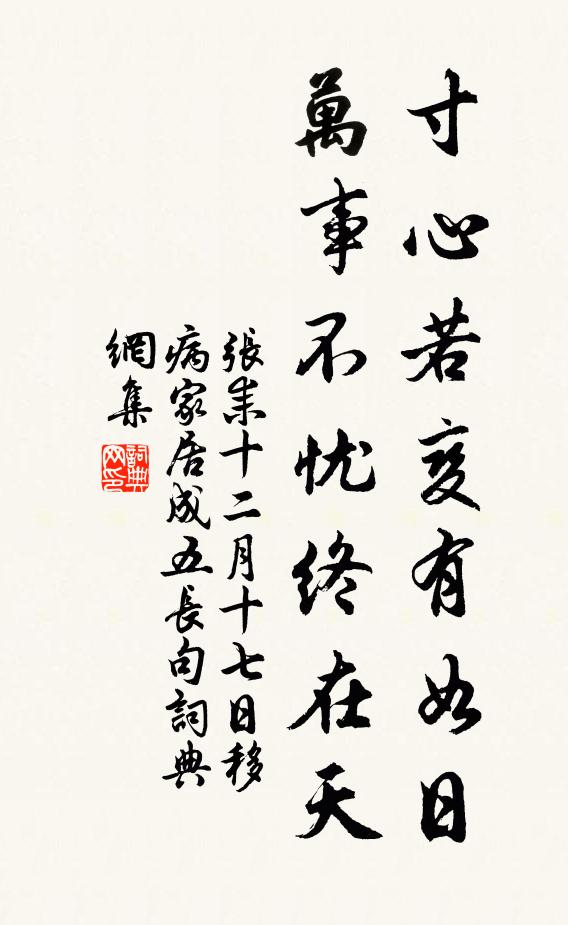 寸心若变有如日
萬事不忧终在天
張耒十二月十七日移
病家居成五長句詞典
網集
詞典
网印